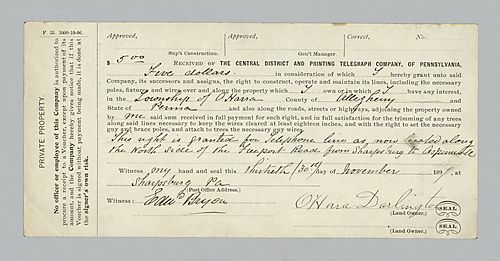 F 53. 5000-10-96.
PRIVATE PROPERTY.
No officer or employee of this Company is authorized to
procure a receipt to a Voucher, except upon payment of its
amount, and any Company gives notice that if this
Voucher is signed without payment being made, it is done at
the signer's own risk.
Approved, Approved, Correct. No.
Sup't Construction. Gen'l Manager.
$ 5.00 RECEIVED OF THE CENTRAL DISTRICT AND PRINTING TELEGRAPH COMPANY, OF PENNSYLVANIA,
Five dollars. in consideration of which I hereby grant unto said
Company, its successors and assigns, the right to construct, operate and maintain its lines, including the necessary
poles, fixtures and wires, over and along the property which I own or in which I have any interest,
in the Township of O'Harra County of Allegheny and
State of Penna and also upon and along the roads, streets or highways, adjoining the property owned
by me said sum received in full payment for such right, and in full satisfaction for the trimming of any trees
along said lines necessary to keep the wires cleared at least eighteen inches, and with the right to set the necessary
guy and brace poles, and attach to trees the necessary guy wires.
This right is granted for Telephone line as now located along
the North side of the Freeport Road from Sharpsburg to Aspinwall
Witness my hand and seal this thirtieth /30th/ day of November 189
at Sharpsburg Pa
(Post Office Address.)
Witness: Bryon O'Hara Darlington SEAL
(Land Owner.)
SEAL
(Land Owner.)